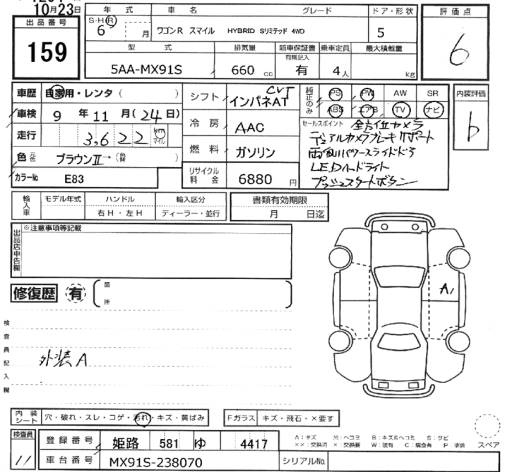 10月23日
出品番号
159
年式
S・H・R
6 月
車名
グレード
ワゴンR スマイル HYBRID Sリミテッド 4WD
ドア・形状
5
評価点
6
型式
排気量
新車保証書
有無記入
乗車定員
最大積載量
5AA-MX91S
660 cc
有
4人
kg
車歴 自家用・レンタ ( )
車検 9年11月(24日)
走行 3,622 km マイル
色 ブラウンⅡ→
カラーNo E83
シフト CVT インパネAT
冷房 AAC
燃料 ガソリン
リサイクル料金 6880 円
PS PW AW SR
ABS エアB TV ナビ
セールスポイント 全方位カメラ
デュアルカメラブレーキサポート
両側パワースライドドア
LEDヘッドライト
プッシュスタートボタン
内装評価
b
輸入車
モデル年式
ハンドル
右H・左H
輸入区分
ディーラー・並行
書類有効期限
月 日迄
出品店申告欄
※注意事項等記載
修復歴 有
箇所
検査員記入欄
外装A
A1
内装シート
穴・破れ・スレ・コゲ・汚れ・キズ・黄ばみ
Fガラス キズ・飛石・×要す
検査員
11
登録番号 姫路 581 ゆ 4417
車台番号 MX91S-238070
シリアルNo.
スペア